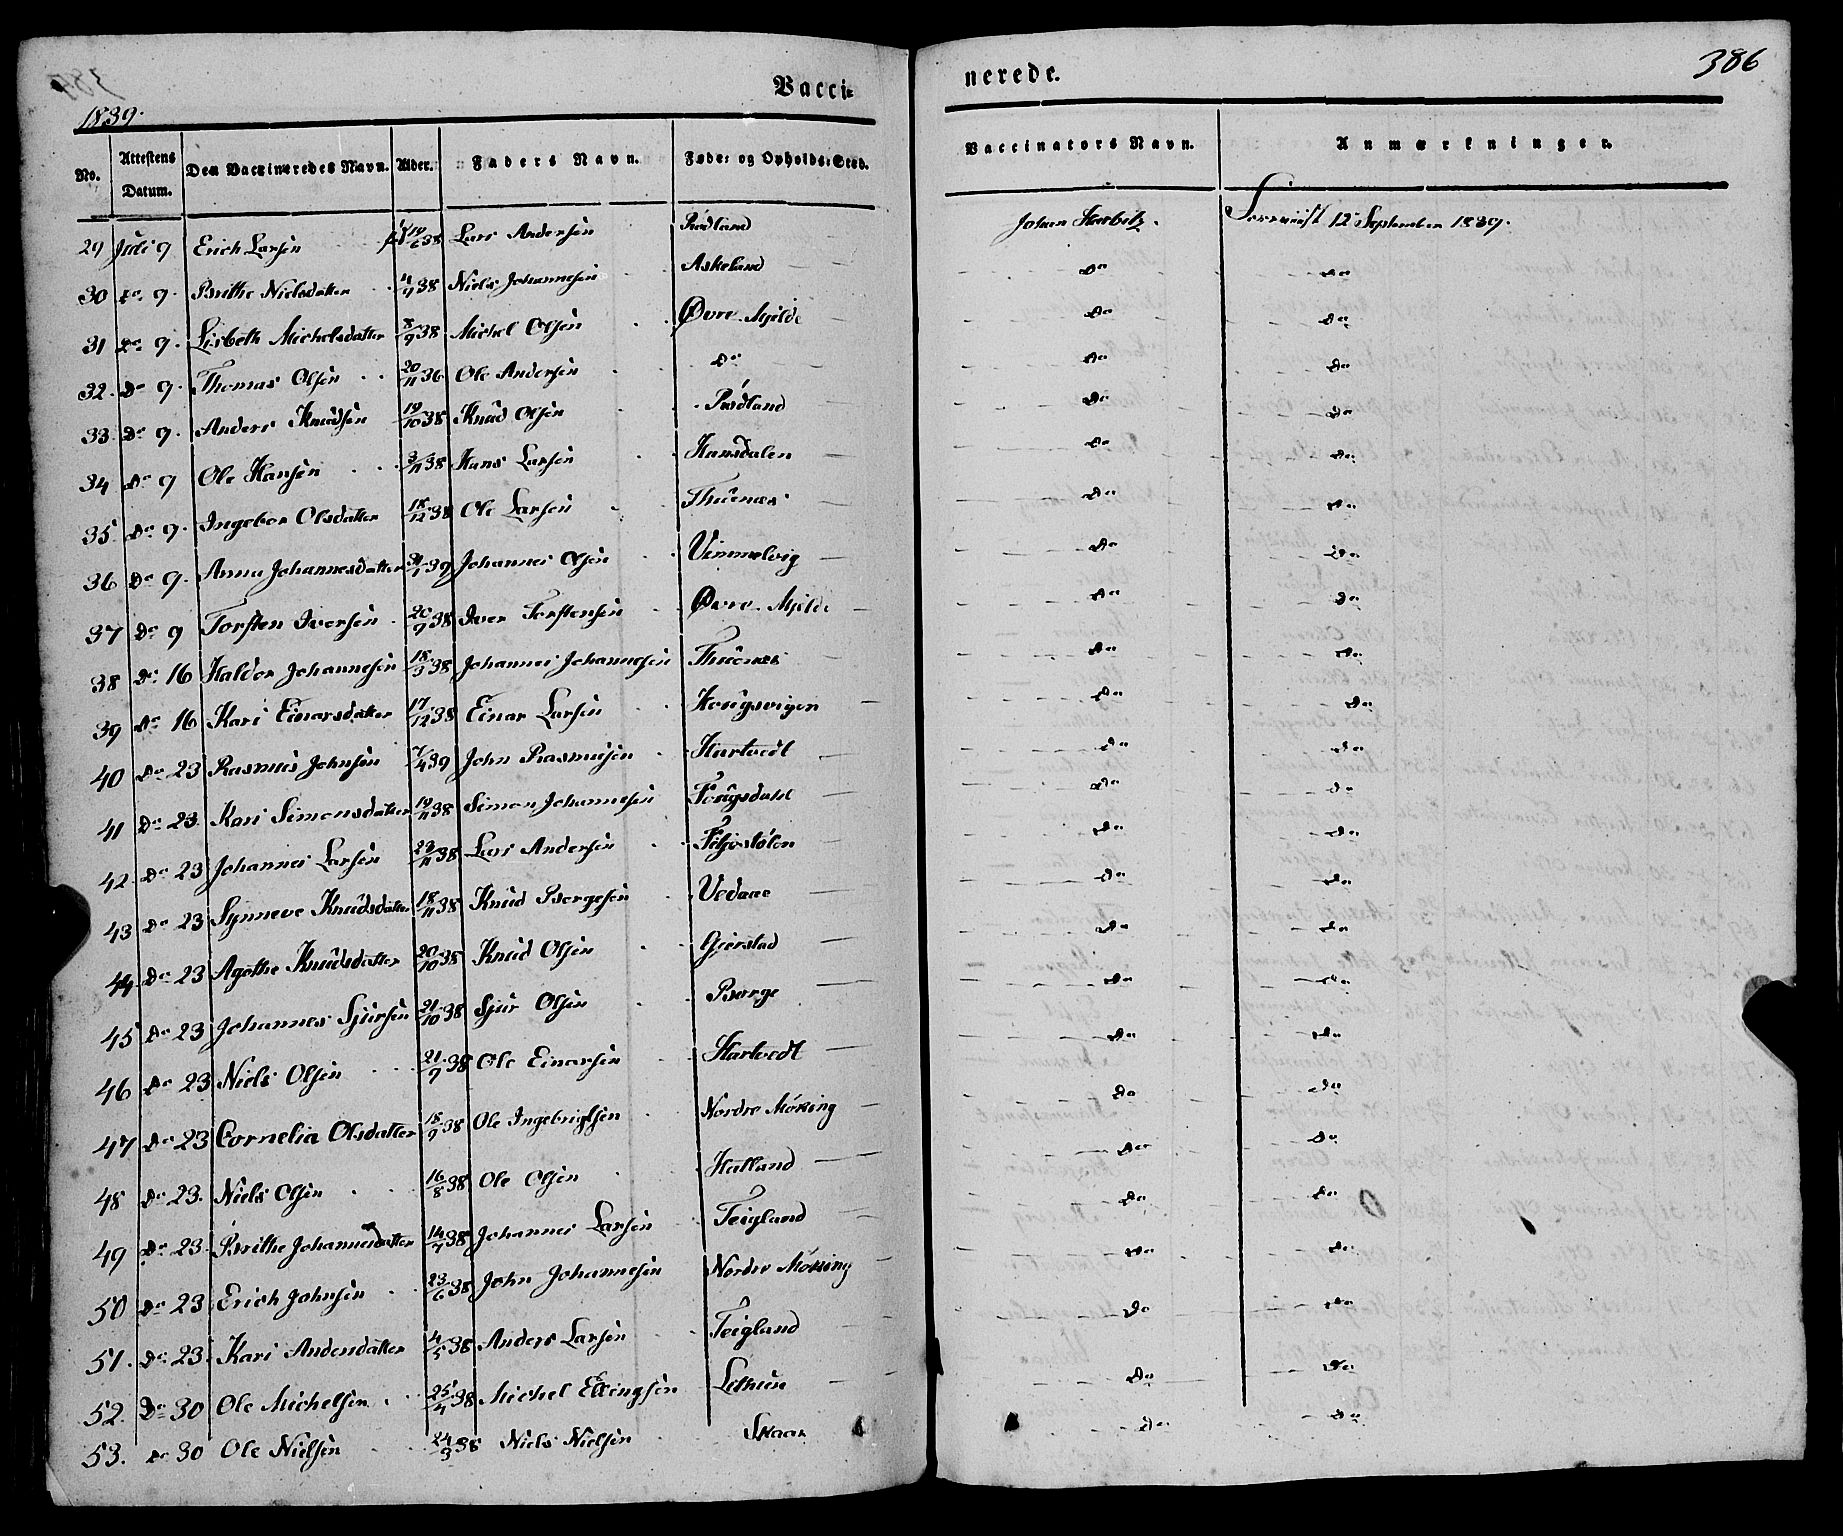 386
Vacci- nerede.
1839.
No. Attestens Datum. Den Vaccineredes Navn. Alder. Faders Navn. Føde- og Opholds-Sted. Vaccinators Navn. Anmærkninger.
29 Juli 9 Erich Larsen 19/6 38 Lars Andersen Rødland Johan 12 September 1839.
30 Do 9. Brithe Nielsdatter 4/9 38 Niels Johannesen Askeland Do Do
31 Do 9. Lisbeth Michelsdatter 8/9 38 Michel Olsen Øvre Mjelde Do Do
32. Do 9. Thomas Olsen 20/11 36 Ole Andersen Do Do Do
33. Do 9. Anders Knudsen 19/10 38 Knud Olsen Rødland Do Do
34 Do 9 Ole Hansen 3/11 38 Hans Larsen Hansdalen Do Do
35. Do 9. Ingebor Olsdatter 18/12 38 Ole Larsen Thuenæs Do Do
36 Do 9. Anna Johannesdatter /1 39 Johannes Olsen Vimmelvig Do Do
37 Do 9 Torsten Iversen 20/9 38 Iver Torstensen Øvre Mjelde Do Do
38 Do 16 Haldor Johannesen 18/3 38 Johannes Johannesen Thuenæs Do Do
39 Do 16 Kari Einarsdatter 17/12 38 Einar Larsen Hougsvigen Do Do
40 Do 23 Rasmus Johnsen 7/4 39 John Rasmusen Hartvedt Do Do
41 Do 23. Kari Simonsdatter 19/11 38 Simon Johannesen Fougsdahl Do Do
42. Do 23 Johannes Larsen 23/11 38 Lars Andersen Do Do
43 Do 23 Synneve Knudsdatter 18/11 38 Knud Børgesen Vedaae Do Do
44 Do 23 Agathe Knudsdatter 20/10 38 Knud Olsen Gierstad Do Do
45 Do 23 Johannes Sjursen 21/10 38 Sjur Olsen Borge Do Do
46 Do 23 Niels Olsen 21/9 38 Ole Einarsen Hartvedt Do Do
47 Do 23 Cornelia Olsdatter 18/9 38 Ole Ingebrigtsen Nordre Møking Do Do
48 Do 23. Niels Olsen 16/8 38 Ole Olsen Hatland Do Do
49 Do 23. Brithe Johannesdatter 14/7 38 Johannes Larsen Teigland Do Do
50 Do 23 Erich Johnsen 23/6 38 John Johannesen Nordre Møking Do Do
51. Do 23. Kari Andersdatter 4/5 38 Anders Larsen Teigland Do Do
52. Do 30 Ole Michelsen 25/4 38 Michel Ellingsen Do Do
53. Do 30 Ole Nielsen 24/3 38 Niels Nielsen Skaar Do Do